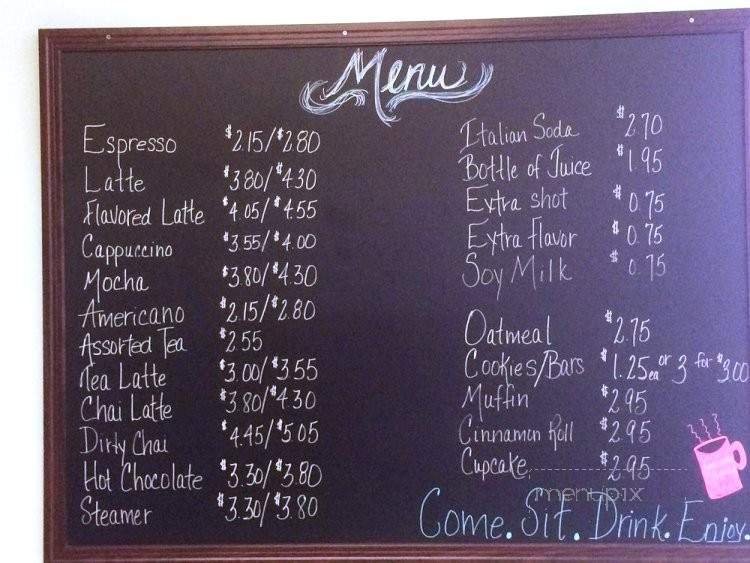 Menu
Espresso $2.15/$2.80
Latte $3.80/$4.30
Flavored Latte $4.05/$4.55
Cappuccino $3.55/$4.00
Mocha $3.80/$4.30
Americano $2.15/$2.80
Assorted Tea $2.55
Tea Latte $3.00/$3.55
Chai Latte $3.80/$4.30
Dirty Chai $4.45/$5.05
Hot Chocolate $3.30/$3.80
Steamer $3.30/$3.80
Italian Soda $2.70
Bottle of Juice $1.95
Extra shot $0.75
Extra flavor $0.75
Soy Milk $0.75
Oatmeal $2.75
Cookies/Bars $1.25ea or 3 for $3.00
Muffin $2.95
Cinnamon Roll $2.95
Cupcake $2.95
menupix
Come. Sit. Drink. Enjoy.